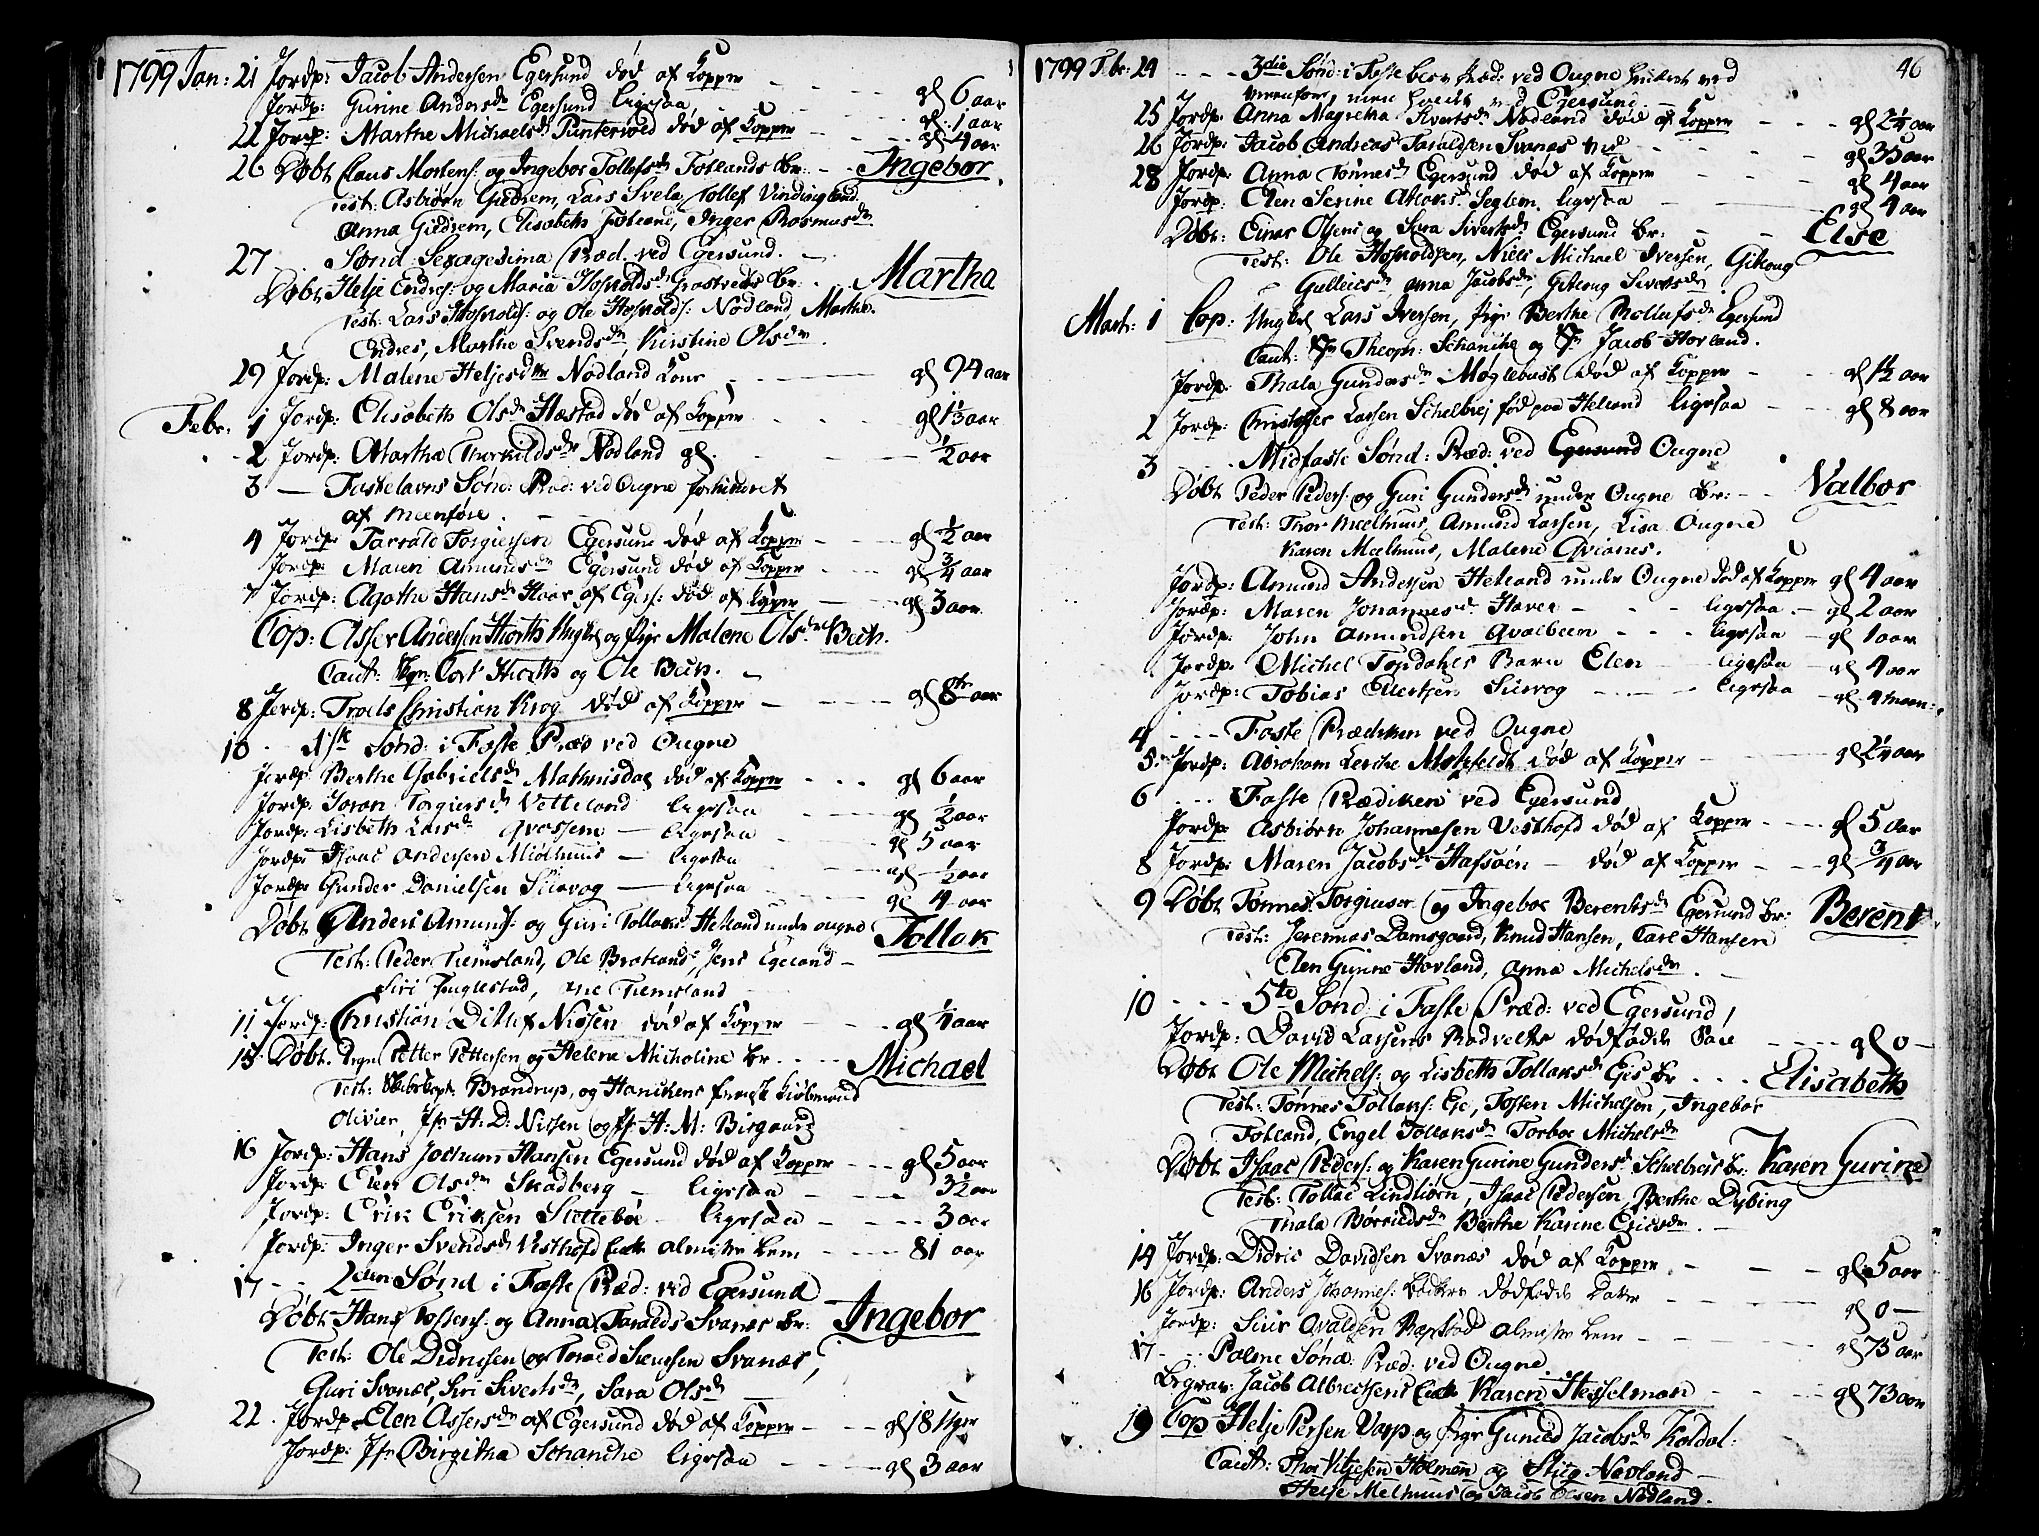 1799 Jan: 21 Jordp: Jacob Andersen Egersund død af Kopper - - - gl 6 aar
Jordp: Gurine Andersdr Egersund ligesaa - - gl 1 aar
22 Jordp: Marthe Michaelsdr Puntervold død af Kopper - - gl 4 aar
26 Døbt Claus Mortens: og Ingebor Tollefsdr Fotlands Br: - - Ingebor
Test: Asbiørn Gudrem, Lars Svela, Tollef Vindingland
Anna Gudrem, Elisabeth Fotland, Inger Rasmusdr
27 . . Sønd Sexagesima Præd. ved Egersund. -
Døbt Helje Endres: og Maria Hosvoldsdr Br: . . Martha
Test: Lars Hosvolds: og Ole Hosvolds: Nodland, Marthe
Endres, Marthe Svendsdr Kirstine Olsdr
29 Jordp: Malene Heljesdtr Nodland Kone - - - gl 94 aar
Febr. 1 Jordp: Elisabeth Olsdr Hæstad død af Kopper - - - gl 1 1/3 aar
2 Jordp: Martha Thorkildsdr Nodland gl. - - - 1/2 aar
3 - Fastelavns Sønd: Præd: ved Ougne forhindret
af meenføre. - -
4 Jordp: Tarrald Torgiersen Egersund død af Kopper - - - gl 1/2 aar
Jordp: Maren Amundsdr Egersund død af Kopper - - - gl 3/4 aar
7 Jordp: Agathe Hansdr Hoas af Egers: død af Kopper - - gl 3 aar
Cop: Asser Andersen Hiorth Ungkl og Pige Malene Olsdr Bech.
Caut: Cort Hiorth og Ole Bech. -
8 Jordp: Troels Christian Krog død af Kopper - - - gl 8te aar
10 . . 1ste Sønd: i Faste Præd ved Ougne
Jordp: Berthe Gabrielsdr død af Kopper - - - gl 6 aar
Jordp: Joran Torgiersdr Vetteland ligesaa - - gl 1/2 aar
Jordp: Lisbeth Larsdr Qvassem - ligesaa - - gl 5 aar
Jordp: Isaac Andersen Miølhuus - ligesaa - - gl 1/2 aar
Jordp: Gunder Danielsen Siirvog - ligesaa - - gl 4 aar
Døbt Anders Amunds: og Guri Tollaks: Hetland under ougne Tollak
Test: Peder Tiemsland, Ole Bratland, Jens Egeland -
Siri Fuglestad, Ane Tiemsland
11 Jordp: Christian Ditlef Nissen død af Kopper - - - gl 1/4 aar
15 Døbt. Petter Pettersen og Helene Micholine Br. . . . Michael
Test: Brandrup, og Hanchens
Olivier, Jfr H: D: Nissen og Jfr H: M: Birgaard
16 Jordp: Hans Jochum Hansen Egersund død af Kopper - - - gl 5 aar
Jordp: Elen Olsdr Skadberg - ligesaa - - - 3 1/2 aar
Jordp: Erik Eriksen Slettebøe - ligesaa - - - 3 aar
Jordp: Inger Svendsdr Vesthofd Enke almisse lem - - - 81 aar
17 - - 2den Sønd i Faste Præd: ved Egersund
Døbt Hans og Anna Taralds Svanes Br: Ingebor
Test: Ole Didricsen og Torald Svendsen Svanæs,
Guri Svanæs, Siri Sivertsdr, Sara Olsdr -
22 . Jordp. Elen Assersdr af Egersund død af Kopper - - - gl 18 Uger
Jordp: Jfr Birgitha Schanche ligesaa - - - gl 3 aar
46
1799 Febr: 24 - - - 3die Sønd: i Faste præd: ved Ougne hindret ved
meenføre, men holdt ved Egersund. -
25 Jordp: Anna Magretha Sivertsdr Nodland død af Kopper - - - gl 2 1/4 aar
26 Jordp: Jacob Andreas Taraldsen Svanæs - - - gl 3 1/2 aar
28 Jordp: Anna Tønnesdr Egersund død af Kopper - - - gl 4 aar
Jordp: Elen Serine Seglem ligesaa - - - gl 4 aar
Døbt: Einar Olsens og Sivertsdr Egersund Br: - - Else
Test: Ole Hosvoldsen, Niels Michael Iversen, Gitlaug
Anna Jacobsdr, Gitlaug Sivertsdr
Marti: 1 Cop: Ungkl Lars Iversen, Pige Berthe Egersund
Caut: Sr Theoph: Schanche og Sr Jacob Hovland.
Jordp: Thala Gundersdr Møglebust død af Kopper - - gl 1 1/2 aar
2 Jordp: Christoffer Larsen Schelbrej fød paa Hetland ligesaa - - gl 8 aar
3 . . . Midfaste Sønd: Præd: ved Egersund Ougne
Døbt Peder Peders: og Guri Gundersdr under Ougne Br: - - Valbor
Test: Thor Mælhuus, Amund Larsen, Lisa Ougne
Karen Mælhuus, Malene Qvianes.
Jordp: Amund Andersen Hetland under Ougne død af Kopper gl 4 aar
Jordp: Maren Johannesdr Haver - - - ligesaa - gl 2 aar
Jordp: John Amundsen Qvalbeen - - - ligesaa - gl 1 aar
Jordp: Michel Topdahls Barn Elen - ligesaa - gl 4 aar
Jordp: Tobias Eilertsen Siirvog - - - ligesaa - gl 4 maan:
4 - - - Faste Prædiken ved Ougne
5 . Jordp: Abraham Lerche død af Kopper - - - gl 2 1/4 aar
6 . . . Faste Prædiken ved Egersund
Jordp: Asbiørn Johannesen Vesthofd død af Kopper - - - gl 5 aar
8 Jordp: Maren Jacobsdr Hafsøen - død af Kopper - - gl 3/4 aar
9 Døbt Tønnes Torgiuser og Ingebor Berentsdr Egersund Br: Berent
Test: Jeremias Damsgaard, Knud Hansen, Carl Hansen
Elen Gurine Hovland, Anna Michelsdr. -
10 - - - 5te Sønd: i Faste Præd: ved Egersund
Jordp: David Larsens dødfødde - - - gl 0 -
Døbt Ole Michels: og Lisbeth Tollaksdr Eies Br . . . Elisabeth
Test: Tønnes Tollaks: Eie, Tosten Michelsen, Ingebor
Fotland, Engel Tollaksdr Torbor Michelsdr
Døbt Isaac Peders: og Karen Gurine Gundersdr Schelbreis Br: Karen Gurine
Test: Tollac Lindtiørn, Isaac Pedersen, Berthe Dybing
Thala Børrildsdr Berthe Karine Ericsdr. -
14 Jordp: Didric Davidsen Svanæs død af Kopper. - - - gl 5 aar
16 Jordp: Anders Johannes: dødfødde Dater - - - gl 0 -
Jordp: Sivir Ovaldsen almisse lem - - - gl 73 aar
17 - - Palme Sønd: Præd: ved Ougne.
Begrav: Jacob Albrechtsens Enke Karen Hesselman - - - gl 73 aar
19 Cop Helje Persen Varp og Pige Guned Jacobsdr Koldal.
Caut: Thor Vitjesen Holmen og Stiig Navland -
Helje Melhuus og Jacob Olsen Nodland.